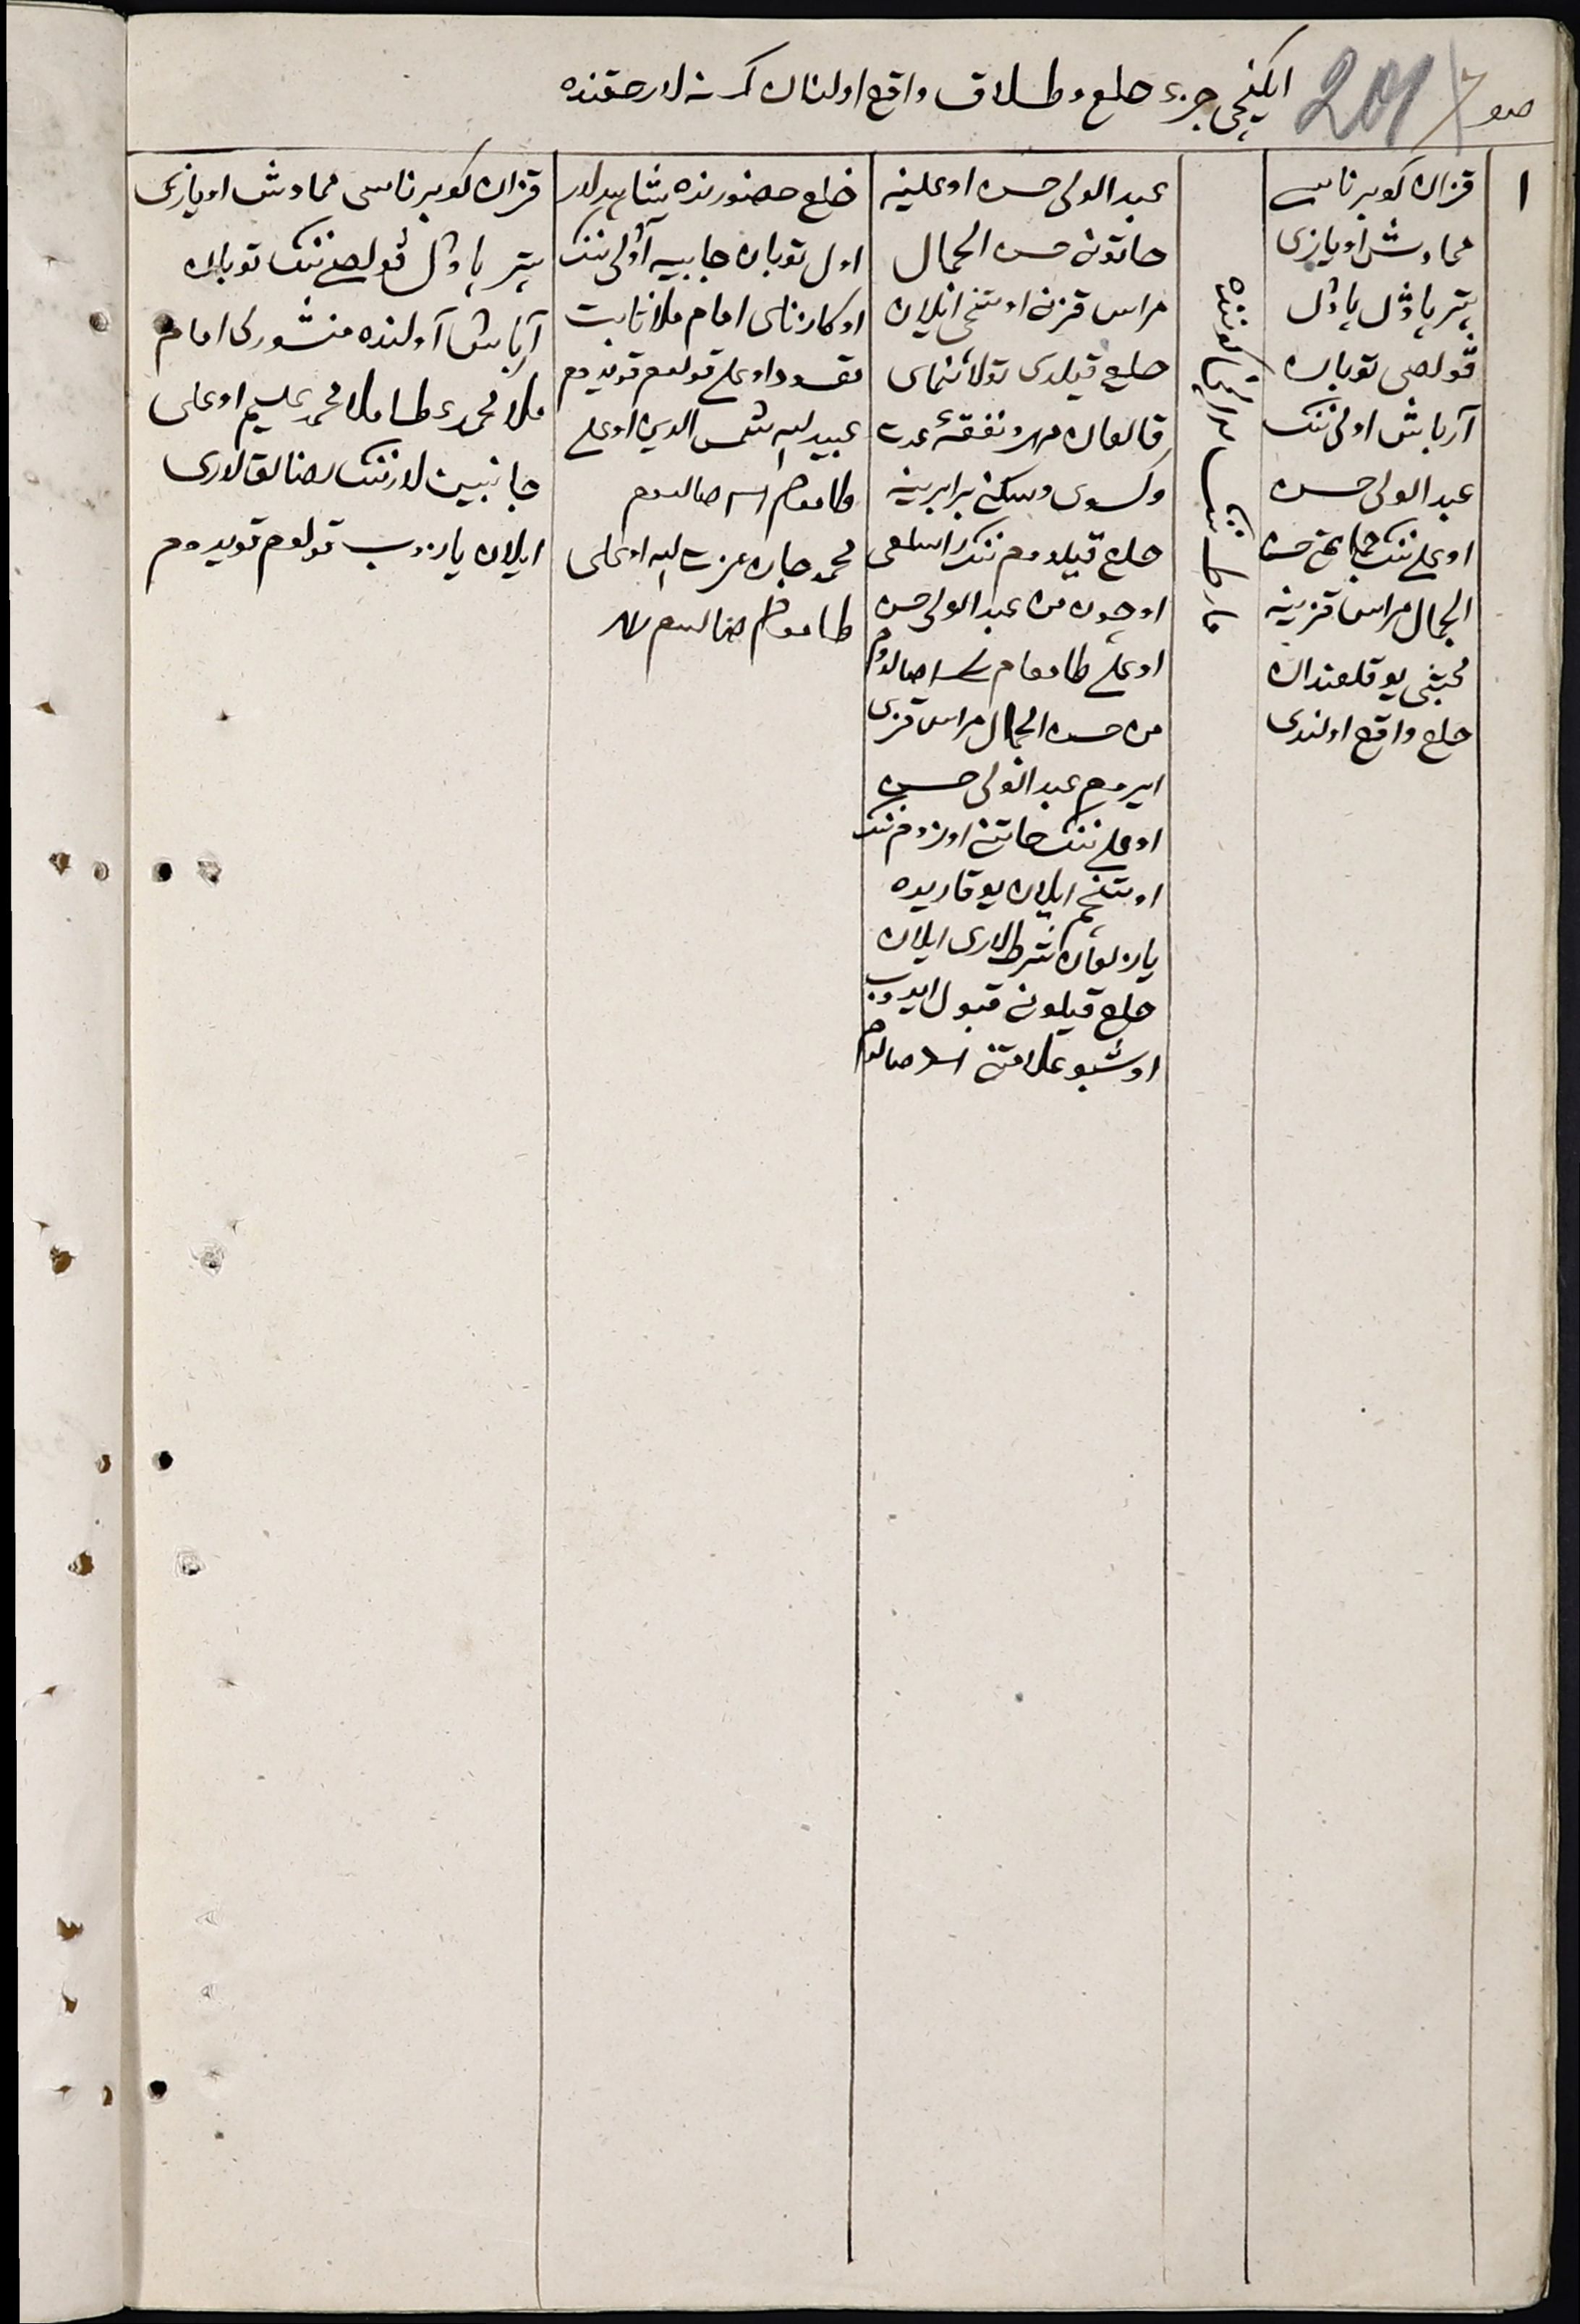 ایکنچی جزء خلع و طلاق واقع اولنان کمسنه لار حقنده
201
۱
قزان کوبرناسی
ممادش اویازی
پتر پاوُل پاوُل
ڤولصی توبان
آرباش اولی ننک
عبدالولی حسن
اوغلی ننک جماعتی حسن
الجمال مراس قزینه
محبتی یوقلغندان
خلع واقع اولندی
مارط ننک
کوننده
عبدالولی حسن اوغلینه
خاتونی حسن الجمال
مراس قزنی اوتنچی ایلان
خلع قیلدی تولانمای
قالغان مهر و نفقهٔ عدت
و کسوی و سکنی برابرینه
خلع قیلدوم ننک راسلغی
اوچون من عبدالولی حسن
اوغلی طامغام صالدوم
من حسن الجمال مراس قزی
ایروم عبدالولی حسن
اوغلی ننک خاتنی اوزوم ننک
اوتنچم ایلان یوقاریده
یازلغان شرطلاری ایلان
خلع قیلونی قبول ایدوب
اوشبو علامتنی صالدم
خلع حضورنده شاهدلار
اول توبان جابیه آولی ننک
اوکازنای امام ملا ثابت
مقصود اوغلی قولوم قویدوم
عبیدالله شمس الدین اوغلی
طامغام صالدوم
محمدجان عزت الله اوغلی
طامغام صالدوم
قزان کوبرناسی ممادش اویازی
پتر پاوُل ڤولصی ننک توبان
آرباش آولنده منشورلی امام
ملا محمد عطا ملا محمد علیم اوغلی
جانبین لارننک رضالقلاری
ایلان یازدوب قولوم قویدوم